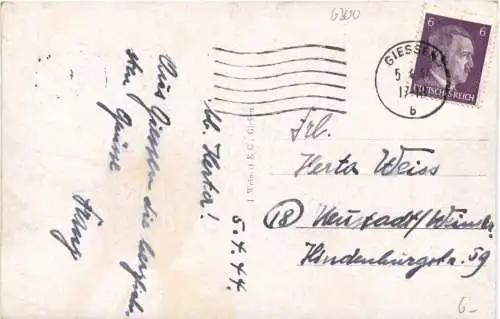 6300
6
6
DEUTSCHES REICH
GIESSEN
5.4.
17-
b
5.4.44.
Lb. Herta!
Aus Giessen die herzlich-
sten Grüsse
Frl.
Herta Weiss
(18) Neustadt/Weinstr.
Hindenburgstr. 59
6-